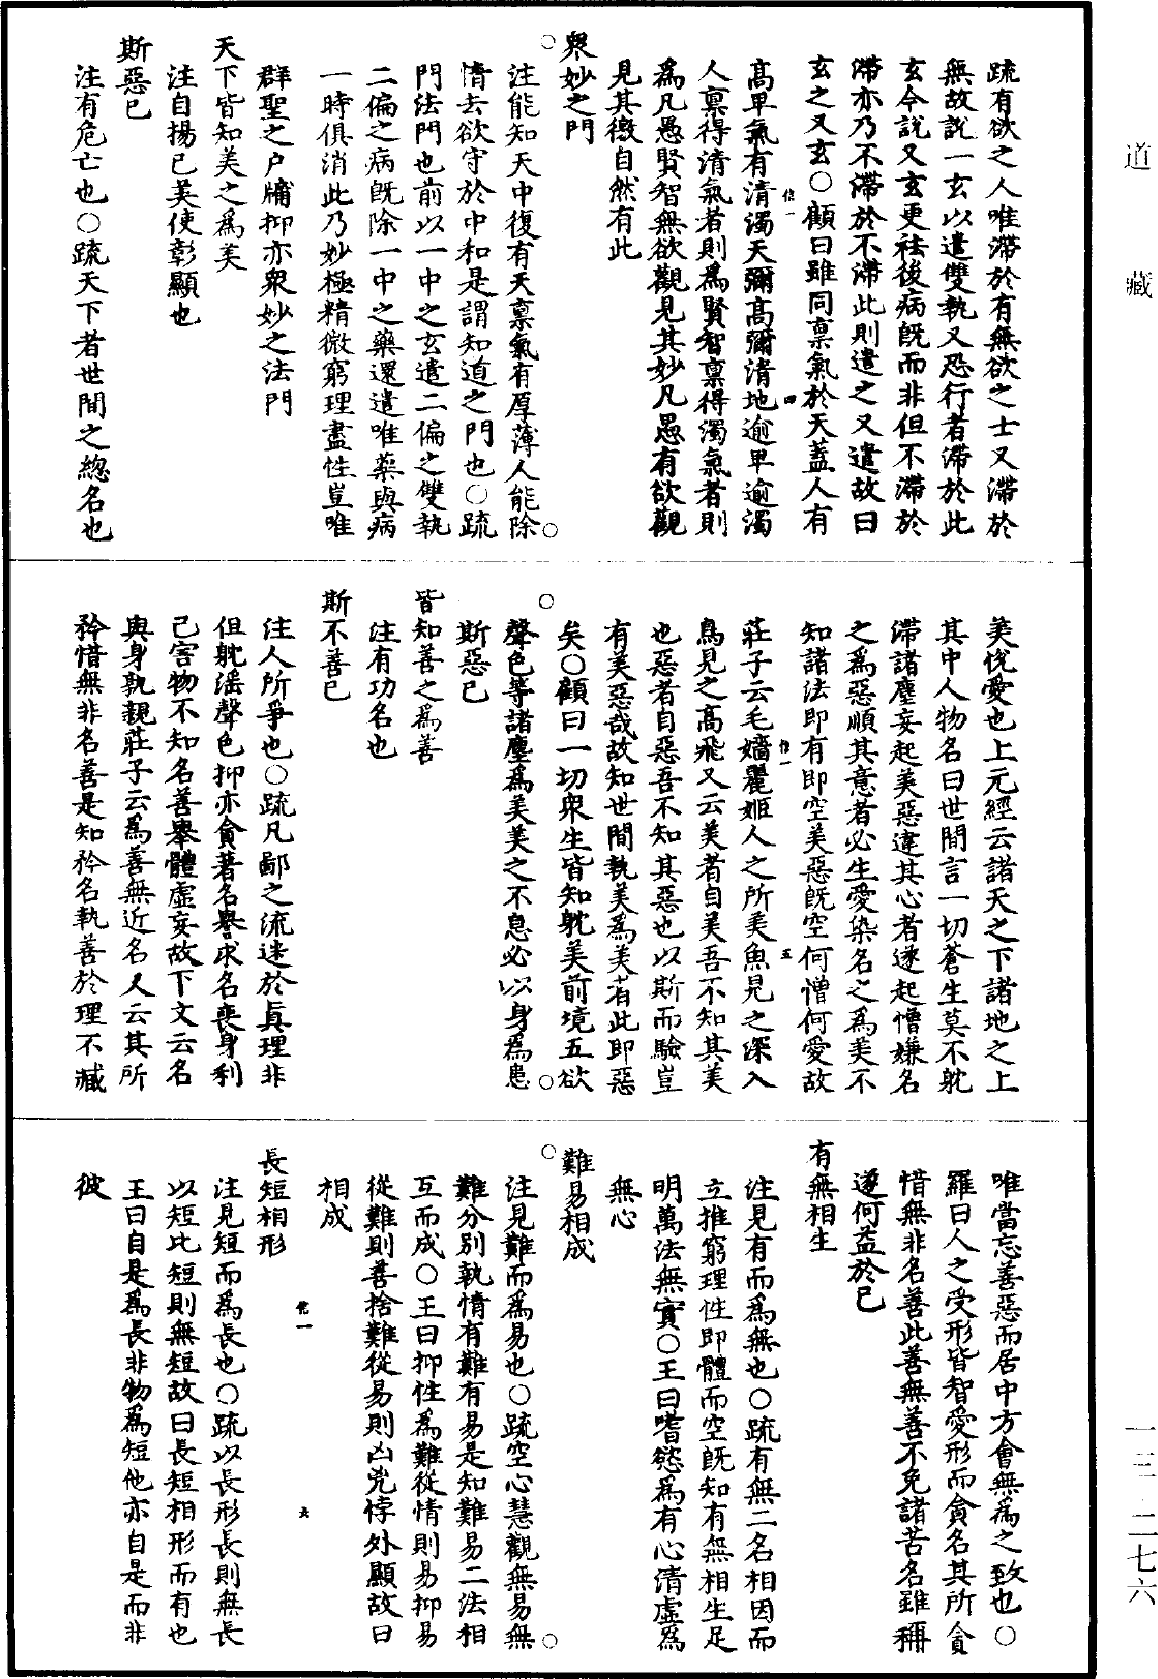 道藏
一三—二七六
疏有欲之人唯滯於有無欲之士又滯於
無故說一玄以遣雙執又恐行者滯於此
玄今說又玄更袪後病既而非但不滯於
滯亦乃不滯於不滯此則遣之又遣故曰
玄之又玄○顧曰雖同禀氣於天蓋人有
高卑氣有清濁天彌高彌清地逾卑逾濁
人禀得清氣者則爲賢智禀得濁氣者則
爲凡愚賢智無欲觀見其妙凡愚有欲觀
見其徼自然有此
衆妙之門
注能知天中復有天禀氣有厚薄人能除
情去欲守於中和是謂知道之門也○疏
門法門也前以一中之玄遣二偏之雙執
二偏之病既除一中之藥還遣唯藥與病
一時俱消此乃妙極精微窮理盡性豈唯
群聖之户牖抑亦衆妙之法門
天下皆知美之爲美
注自揚己美使彰顯也
斯惡已
注有危亡也○疏天下者世間之總名也
美悅愛也上元經云諸天之下諸地之上
其中人物名曰世間言一切蒼生莫不躭
滯諸塵妄起美惡違其心者遂起憎嫌名
之爲惡順其意者必生愛染名之爲美不
知諸法即有即空美惡既空何憎何愛故
莊子云毛嬙麗姬人之所美魚見之深入
鳥見之高飛又云美者自美吾不知其美
也惡者自惡吾不知其惡也以斯而驗豈
有美惡哉故知世間執美爲美者此即惡
矣○顧曰一切衆生皆知躭美前境五欲
聲色等諸塵爲美美之不息必以身爲患
斯惡已
皆知善之爲善
注有功名也
斯不善已
注人所爭也○疏凡鄙之流迷於真理非
但躭滛聲色抑亦貪著名譽求名喪身利
己害物不知名善舉體虛妄故下文云名
與身孰親莊子云爲善無近名又云其所
矜惜無非名善是知矜名執善於理不臧
唯當忘善惡而居中方會無爲之致也○
羅曰人之受形皆智愛形而貪名其所貪
惜無非名善此善無善不免諸苦名雖稱
遂何益於己
有無相生
注見有而爲無也○疏有無二名相因而
立推窮理性即體而空既知有無相生足
明萬法無實○王曰嗜慾爲有心清虛爲
無心
難易相成
注見難而爲易也○疏空心慧觀無易無
難分別執情有難有易是知難易二法相
互而成○王曰抑性爲難從情則易抑易
從難則善捨難從易則凶兇悖外顯故曰
相成
長短相形
注見短而爲長也○疏以長形長則無長
以短比短則無短故曰長短相形而有也
王曰自是爲長非物爲短他亦自是而非
彼